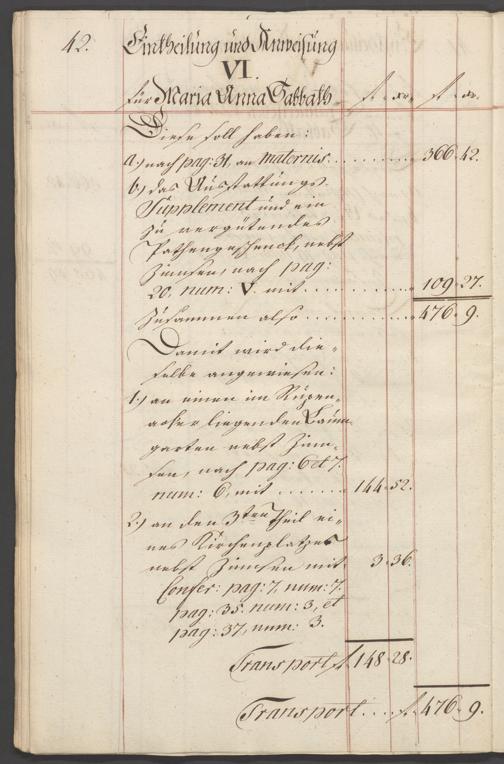 42. Eintheilung und Anweisung
VI.
für Maria Anna Sabbath. f. xr. f. xr.
Diese soll haben:
a.) nach pag: 31. an maternis. 366. 42.
b.) das Ausstattungs-
Supplement und ein
zu vergütendes
Pathengeschenck, nebst
Zinnsen, nach pag:
20. num: V. mit 109. 27.
Zusammen also 476. 9.
Damit wird die-
selbe angewiesen:
1.) an einen im Rüpen-
acker liegenden Baum-
garten nebst Zinn-
sen, nach pag: 6 et 7.
num: 6, mit 144. 52.
2.) an den 3ten Theil ei-
nes Kirchenplatzes
nebst Zinnsen mit 3. 36.
Confer: pag: 7, num: 7.
pag: 35. num: 3, et
pag: 37, num: 3.
Transport f. 148. 28.
Transport f. 476. 9.